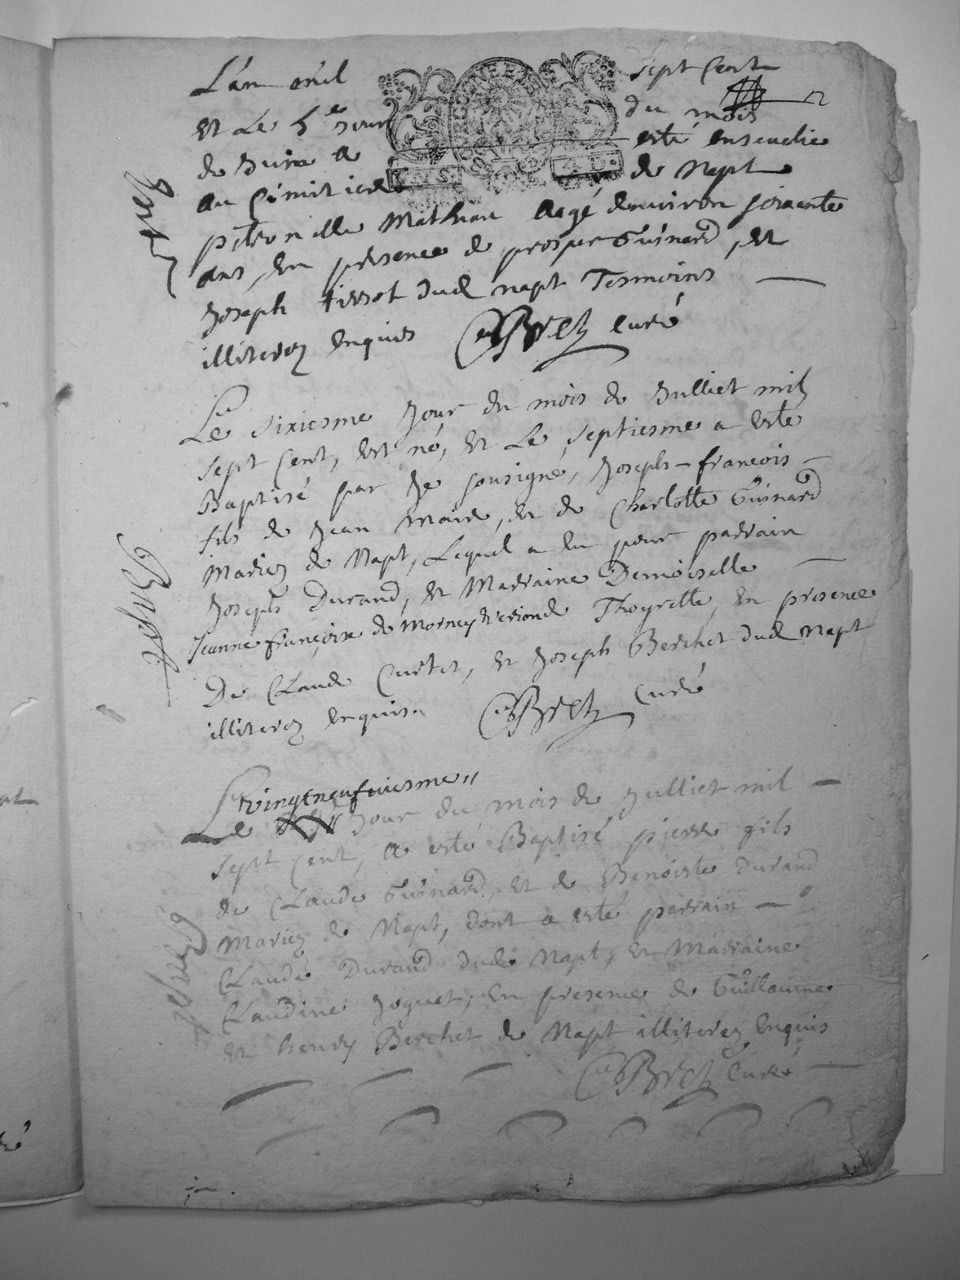 L'an mil sept cent
et Le 5e Jour du mois
de Juin a esté enseuelie
au Cimitiere de Napt
petronille Mathieu aagé denuiron soixante
ans, En presence de prosper Guinard, et
Joseph tissot dud napt Tesmoins
illiterez enquis Brch Curé
Le sixiesme Jour du mois de Julliet mil
sept Cent, est né, et Le septiesme a esté
Baptisé par Je sousigné, Joseph-francois
fils de Jean maire, et de Charlotte Guinard
Mariez de Napt, Lequel a eu pour parrain
Joseph Durand, et Marraine Demoiselle
Jeanne françoise de Morney Thoyrette, En presence
De Claude Curtet, et Joseph Berchet dud Napt
illiterez enquis Brch Curé
vingt neufuiesme
Le Jour du mois de Julliet mil
sept Cent, a esté Baptisé pierre fils
de Claude Guinard, et de Benoiste Durand
Mariez de Napt, dont a esté parrain
Claude Durand dud Napt, et Marraine
Claudine Joguet, En presence de Guillaume
et henry Berchet de Napt illiterez Enquis
Brch Curé